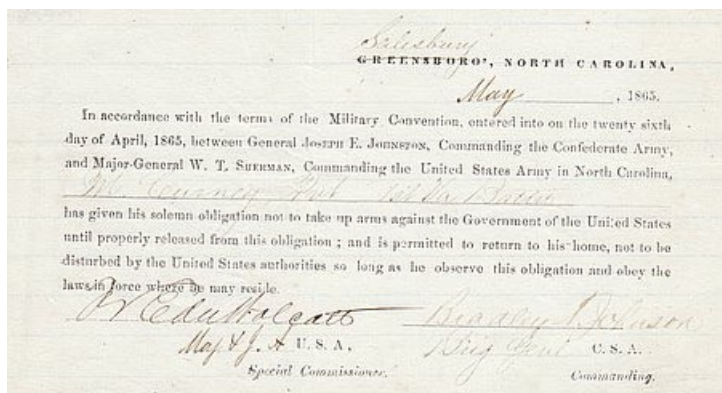 Salisbury
GREENSBORO', NORTH CAROLINA,
May , 1865.
In accordance with the terms of the Military Convention, entered into on the twenty sixth
day of April, 1865, between General JOSEPH E. JOHNSTON, Commanding the Confederate Army,
and Major-General W. T. SHERMAN, Commanding the United States Army in North Carolina,
has given his solemn obligation not to take up arms against the Government of the United States
until properly released from this obligation ; and is permitted to return to his home, not to be
disturbed by the United States authorities so long as he observe this obligation and obey the
laws in force where he may reside.
Edw Wolcott Bradley T Johnson
Maj & J. A U. S. A., Brig Genl C. S. A.
Special Commissioner. Commanding.